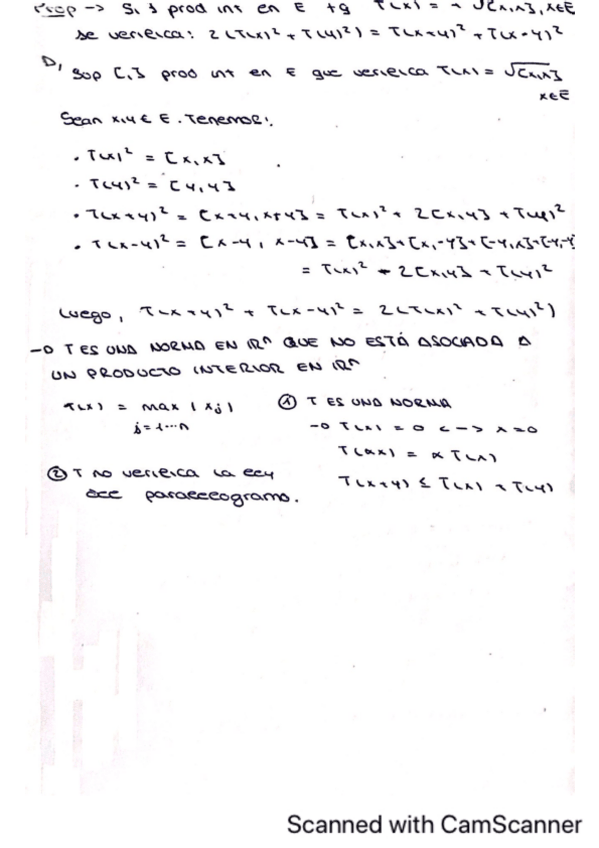 Prop -> Si ∃ prod int en E tq T(x) = + √[x,x], x∈E
se verifica: 2(T(x)² + T(y)²) = T(x+y)² + T(x-y)²
D, Sop [,] prod int en E que verifica T(x) = √[x,x]
x∈E
Sean x,y ∈ E. Tenemos:
• T(x)² = [x,x]
• T(y)² = [y,y]
• T(x+y)² = [x+y, x+y] = T(x)² + 2[x,y] + T(y)²
• T(x-y)² = [x-y, x-y] = [x,x]+[x,-y]+[-y,x]+[-y,-y]
= T(x)² - 2[x,y] + T(y)²
Luego, T(x+y)² + T(x-y)² = 2(T(x)² + T(y)²)
-o T ES UNA NORMA EN ℝⁿ QUE NO ESTÁ ASOCIADA A
UN PRODUCTO INTERIOR EN ℝⁿ
T(x) = max |xj| ① T ES UNA NORMA
j=1...n -o T(x) = 0 <-> x=0
T(αx) = α T(x)
② T no verifica la ley T(x+y) ≤ T(x) + T(y)
del paralelogramo.
Scanned with CamScanner